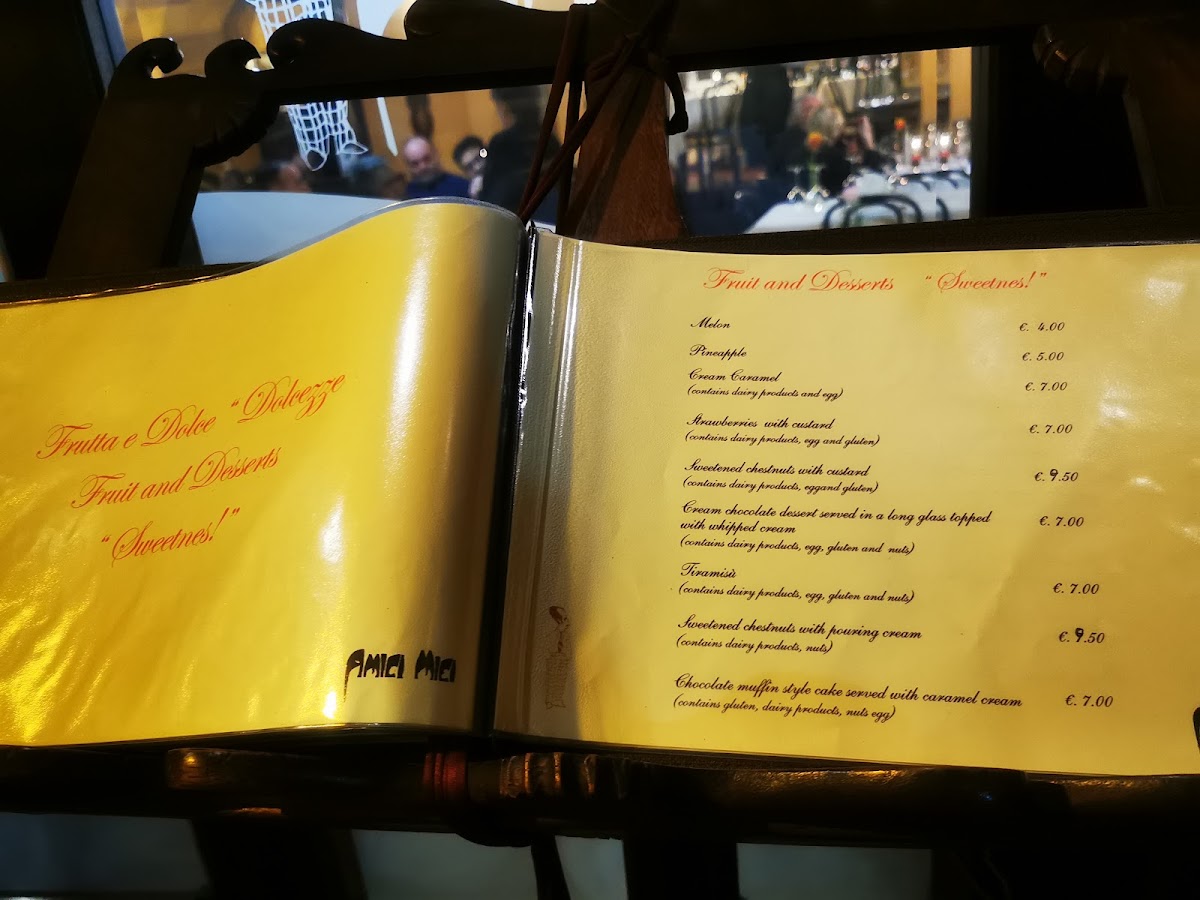 Frutta e Dolce " Dolcezze
Fruit and Desserts
" Sweetnes! "
AMICI MIEI
Fruit and Desserts " Sweetnes! "
Melon €. 4.00
Pineapple €. 5.00
Cream Caramel €. 7.00
(contains dairy products and egg)
Strawberries with custard €. 7.00
(contains dairy products, egg and gluten)
Sweetened chestnuts with custard €. 9.50
(contains dairy products, eggand gluten)
Cream chocolate dessert served in a long glass topped €. 7.00
with whipped cream
(contains dairy products, egg, gluten and nuts)
Tiramisù €. 7.00
(contains dairy products, egg, gluten and nuts)
Sweetened chestnuts with pouring cream €. 9.50
(contains dairy products, nuts)
Chocolate muffin style cake served with caramel cream €. 7.00
(contains gluten, dairy products, nuts egg)